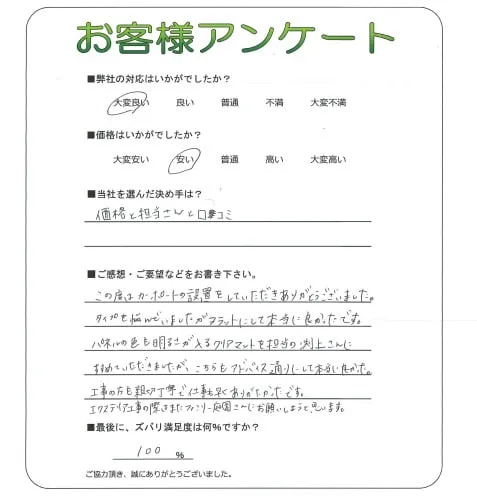 お客様アンケート
■弊社の対応はいかがでしたか？
大変良い 良い 普通 不満 大変不満
■価格はいかがでしたか？
大変安い 安い 普通 高い 大変高い
■当社を選んだ決め手は？
価格と担当さんと口コミ
■ご感想・ご要望などをお書き下さい。
この度はカーポートの設置をしていただきありがとうございました。
タイプを悩んでいましたがフラットにして本当に良かったです。
パネルの色も明るさが入るクリアマットを担当の渕上さんに
すすめていただきましたが、こちらもアドバイス通りにして本当に良かった。
工事の方も親切丁寧で仕事も早くありがたかったです。
エクステリア工事の際はまたファミリー庭園さんにお願いしようと思います。
■最後に、ズバリ満足度は何％ですか？
100 %
ご協力頂き、誠にありがとうございました。